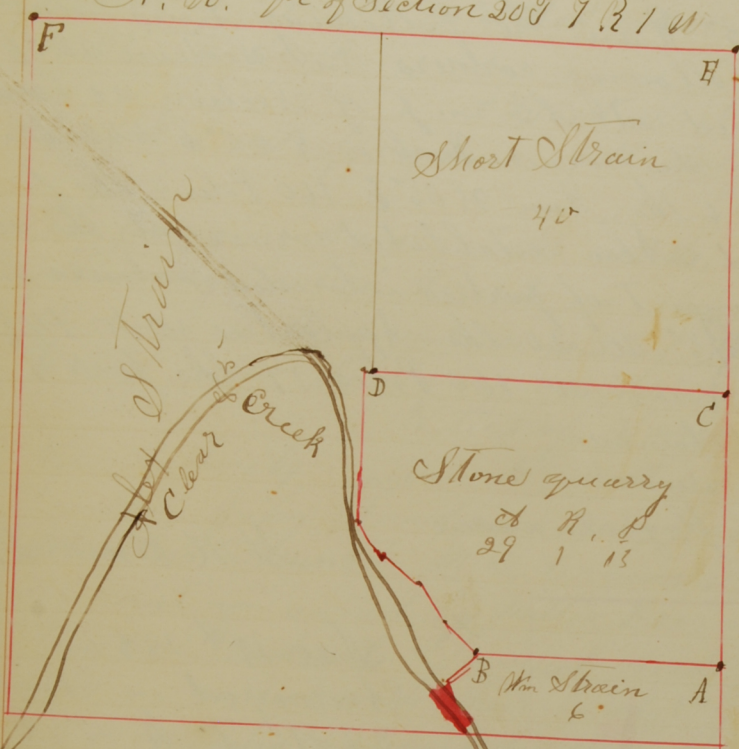 N. W. qr of Section 20 T 7 R 1 W
F
E
Short Strain
40
Alex Strain
85
Clear Creek
D
C
Stone quarry
A R. P
29 1 13
B
Wm Strain
6
A